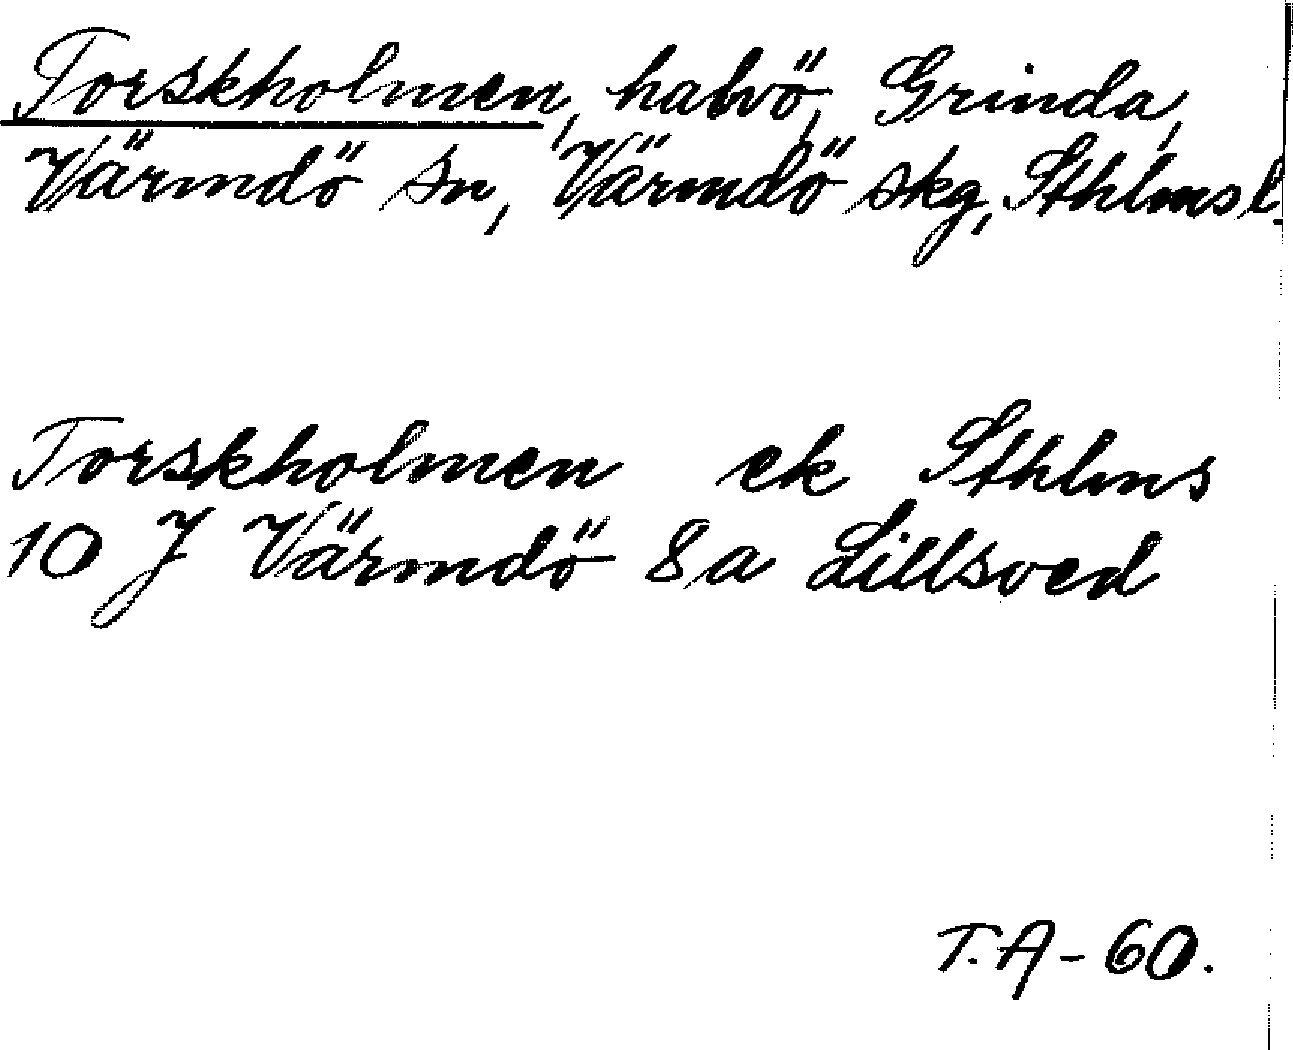 Torskholmen, halvö, Grinda,
Värmdö sn, Värmdö skg, Sthlmsl.
Torskholmen ek Sthlms
10 J Värmdö 8a Lillsved
T.A-60.